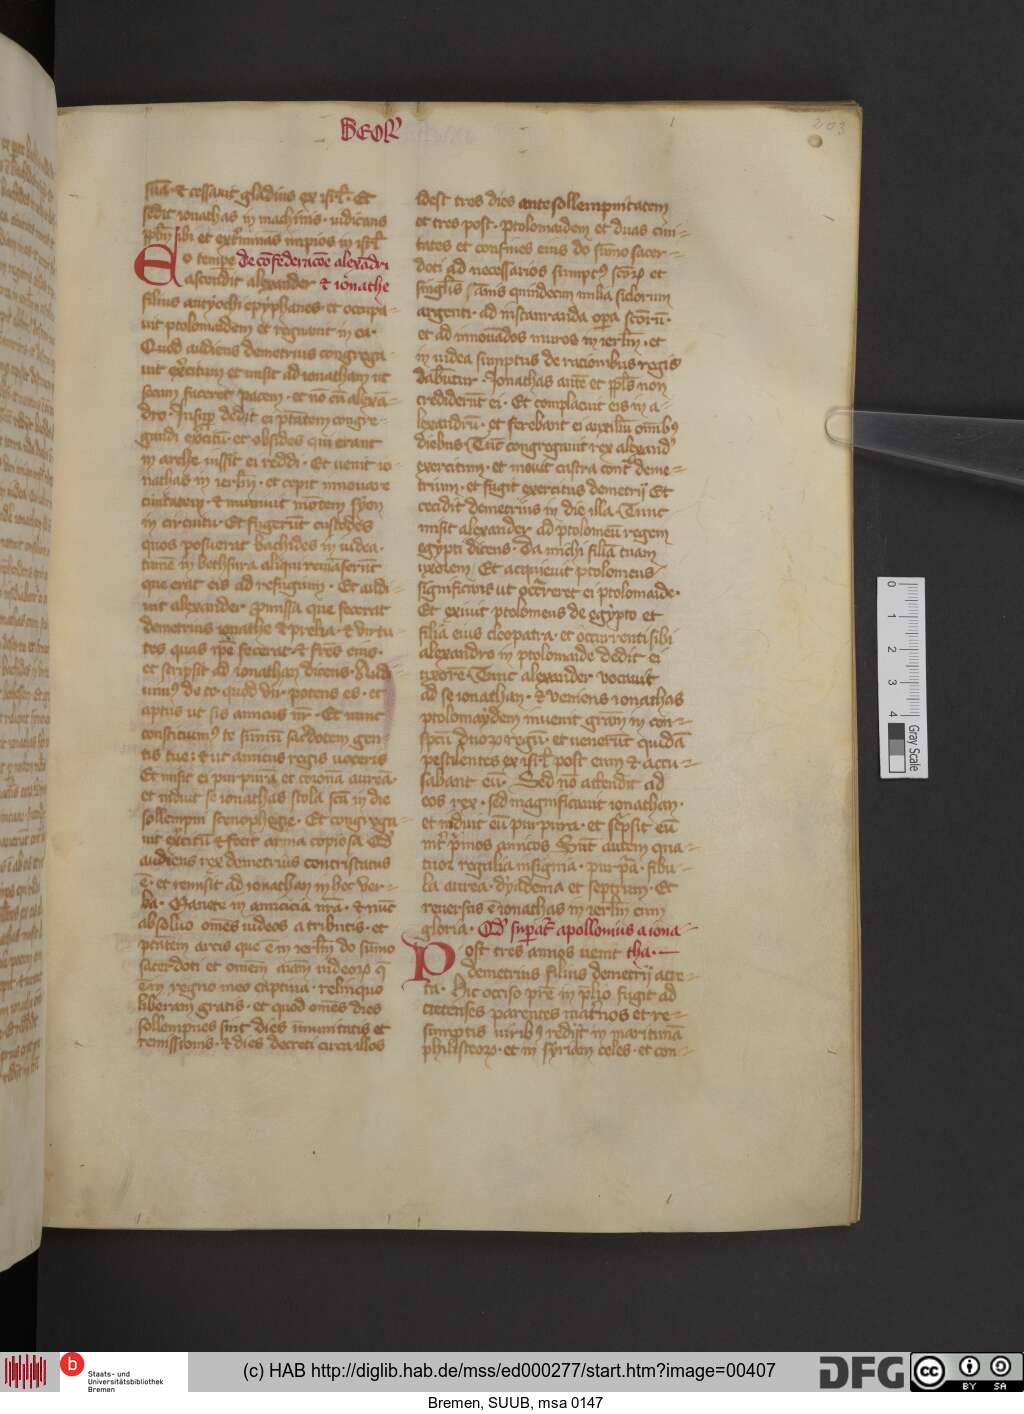 203
suā · et cessauit gladius ex isrl̄ · Et
sedit ionathas in machmis · iudicans
pplm̄ sibi et extͥminans impios in isrl̄
Eo tempe de cōfederacōe alexādri
ascendit alexander et ionathe
filius antyochi epyphanes · et occupa-
uit ptolomaidem et regnauit in ea ·
Quod audiens demetrius congrega-
uit exercitum et misit ad ionatham ut
secum faceret pacem · et nō cū alexā-
dro · Insuper dedit ei ptātem congre-
gandi exercitū · et obsides qui erant
in arche iussit ei reddi · Et uenit io-
nathas in ierlm̄ · et cepit innouare
ciuitatem · et muniuit mōtem syon
in circuitu · Et fugerūt custodes
quos posuerat bachides in iudea ·
tamē in bethsura aliqui remāserūt
que erat eis ad refugium · Et audi-
uit alexander promissa que fecerat
demetrius ionathe et prelia · et virtu-
tes quas ipe fecerat et fr̄es eius ·
et scripsit ad ionathan dicens · Audi
uimus de te · quod vir potens es · et
aptus ut sis amicus nr̄ · Et nunc
constituimus te summū sacdotem gen-
tis tue · et ut amicus regis uoceris
Et misit ei purpurā et coronā aureā ·
et induit se ionathas stola scā in die
sollempni scenophegie · Et congrega-
uit exercitū et fecit arma copiosa Qd
audiens rex demetrius contristatus
ē · et remisit ad ionathan in hec ver-
ba · Manete in amicicia nrā · et nūc
absoluo om̄es iudeos a tributis · et
ptātem arcis que ē in ierlm̄ do sūmo
sacerdoti et omēm aīam iudeorum q̄
ē in regno meo captiua · relinquo
liberam gratis · et quod om̄es dies
sollempnes sint dies immunitatis et
remissionis · et dies decreti circa illos
idest tres dies ante sollempnitatem
et tres post · ptolomaidem et duas ciui-
tates et confines eius do sūmo sacer-
doti ad necessarios sumptus scōrum et
singulis annis quindecim milia siclorum
argenti · ad instauranda opa scōrū ·
et ad innouādos muros in ierlm̄ · et
in iudea sumptus de racionibus regis
dabūtur · Ionathas autē et ppls̄ non
crediderūt ei · Et complacuit eis in a-
lexandrū · et ferebant ei auxiliū omībus
diebus Tūc congregauit rex alexander
exercitum · et mouit castra contra deme-
trium · et fugit exercitus demetrij Et
cecidit demetrius in die illa · Tunc
misit alexander ad ptolomeū regem
egypti dicens · Da michi filiā tuam
uxorem Et acquieuit ptolomeus
significans ut occurreret ei ptolomaide ·
Et exiuit ptolomeus de egypto et
filia eius cleopatra · et occurrenti sibi
alexandro in ptolomaide dedit ei
uxorē Tunc alexander vocauit
ad se ionathan · et veniens ionathas
ptolomaydem inuenit gram in con-
spcū duorum regū · et uenerūt quidā
pestilentes ex isrl̄ post eum et accu-
sabant eū · Sed nō attendit ad
eos rex · sed magnificauit ionathan ·
et induit eū purpura · et scripsit eū
int̄ primos amicos Sūt autem qua-
tuor regalia insignia · purpura · fibu-
la aurea · dyadema et septrum · Et
reuersus ē ionathas in ierlm̄ cum
gloria · Qd supatur apollonius a iona-
Post tres annos uenit tha ·
demetrius filius demetrij a cre-
ta · Hic occiso patre in prelio fugit ad
cretenses parentes maternos et re-
sumptis uiribus redijt in maritimā
philisteorum · et in syriam celes · et con-
0
1
2
3
4
Gray Scale
b
Staats- und
Universitätsbibliothek
Bremen
(c) HAB http://diglib.hab.de/mss/ed000277/start.htm?image=00407
DFG
cc
BY SA
Bremen, SUUB, msa 0147